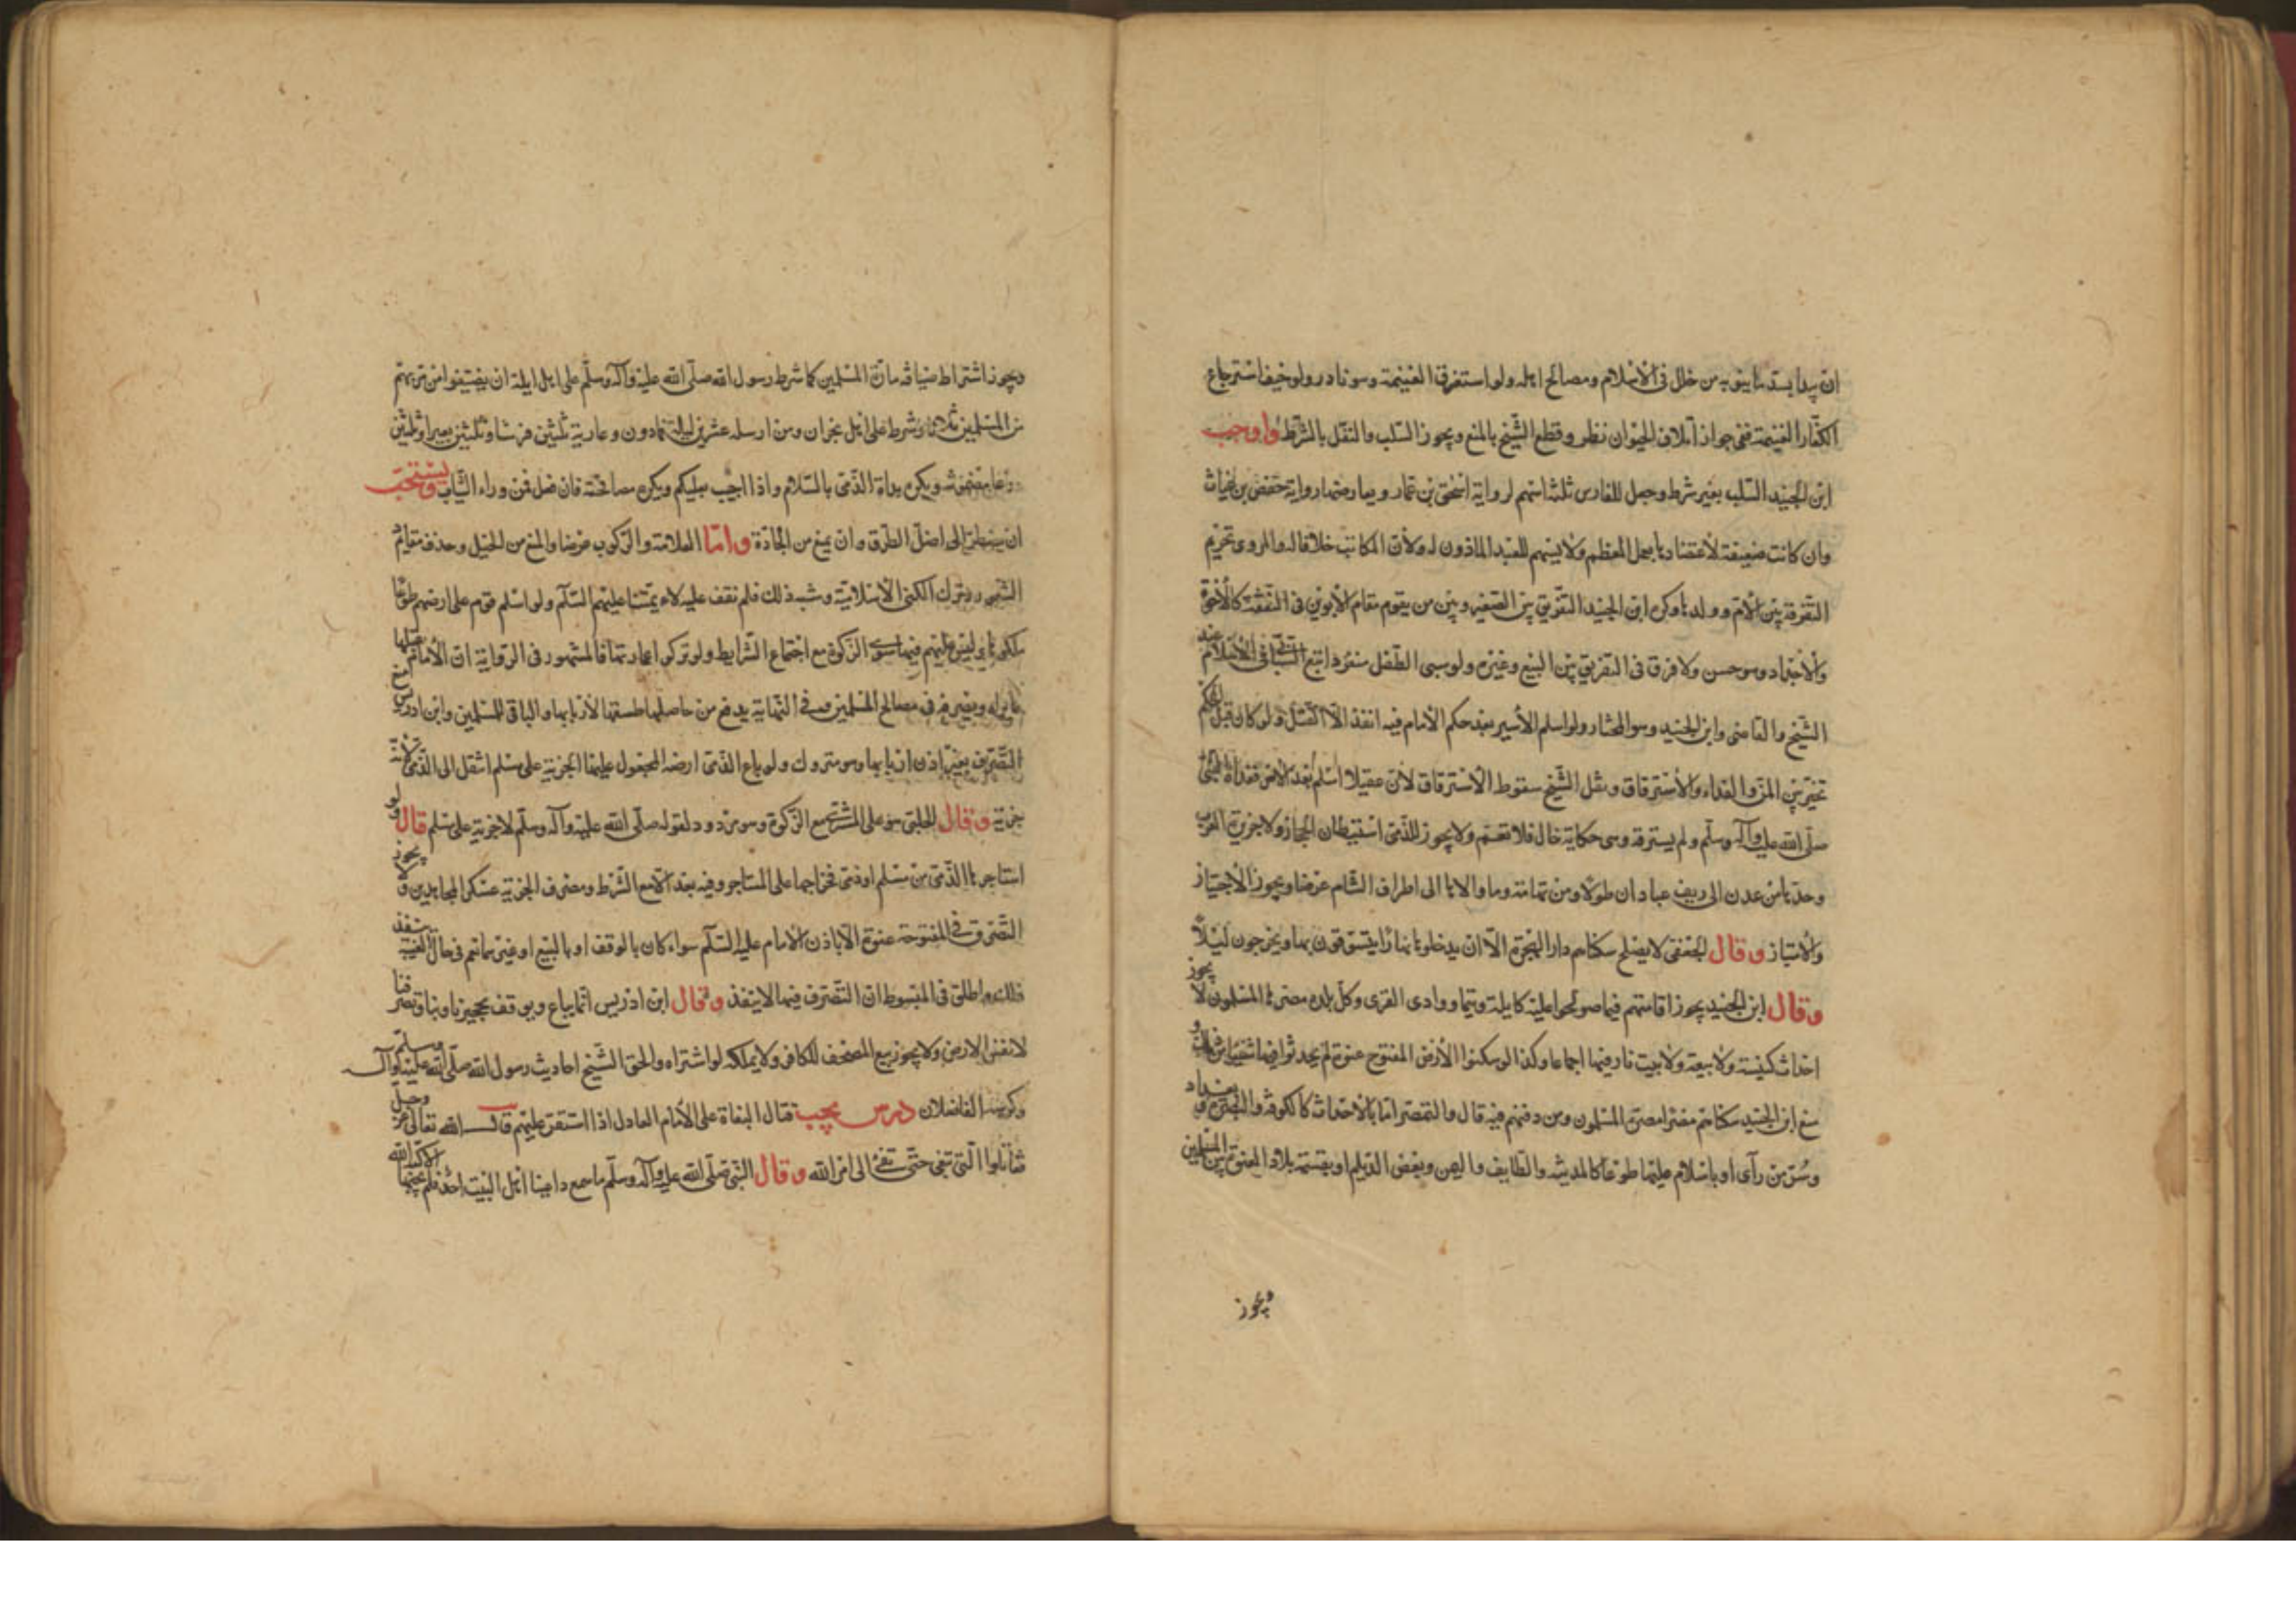 ان يبدا بسد ما ينوبه من خلل فى الاسلام ومصالح اهله ولو استغرق الغنيمة وهو نادر ولو خيف استرجاع
الكفار الغنيمة ففى جواز اتلاف الحيوان نظر وقطع الشيخ بالمنع ويجوز السلب والنفل بالشرط واوجب
ابن الجنيد السلب بغير شرط وجعل للفارس ثلثة اسهم لرواية اسحق بن عمار ويعارضها رواية حفص بن غياث
وان كانت ضعيفة لاعتضادها بعمل المعظم ولا يسهم للعبد الماذون له ولا المكاتب خلافا له والمروى تحريم
التفرقة بين الام وولدها وكره ابن الجنيد التفريق بين الصغير وبين من يقوم مقام الابوين فى الشفقة كالاخوة
والاجداد وهو حسن ولا فرق فى التفريق بين البيع وغيره ولو سبى الطفل منفردا تبع السابى فى الاسلام عند
الشيخ والقاضى وابن الجنيد وهو المختار ولو اسلم الاسير بعد حكم الامام فيه انفذ الا القتل ولو كان قبل الحكم
تخير بين المن والفداء والاسترقاق ونقل الشيخ سقوط الاسترقاق لان عقيلا اسلم بعد الاسر ففداه النبى
صلى الله عليه وآله وسلم ولم يسترقه وهى حكاية حال فلا تعم ولا يجوز للذمى استيطان الحجاز ولا جزيرة العرب
وحدها من عدن الى ريف عبادان طولا ومن تهامة وما والاها الى اطراف الشام عرضا ويجوز الاجتياز
والامتياز وقال الجعفى لا يصلح سكناهم دار الهجرة الا ان يدخلوها نهارا يتسوقون بها ويخرجون ليلا
وقال ابن الجنيد يجوز اقامتهم فيما صولحوا عليه كايلة وتيما ووادى القرى وكل بلدة مصرها المسلمون لا يجوز
احداث كنيسة ولا بيعة ولا بيت نار فيها اجماعا وكذا لو سكنوا الارض المفتوح عنوة لم يحدثوا فيها شيئا من ذلك و
منع ابن الجنيد سكناهم مصرا مصره المسلمون ومن دفنهم فيه قال والتمصر اما بالاحداث كالكوفة والبصرة وبغداد
وسر من رآى او باسلام عليها طوعا كالمدينة والطايف واليمن وبعض الديلم او بقسمة بلاد العنوة بين المسلمين
ويجوز
ويجوز اشتراط ضيافة مارة المسلمين كما شرط رسول الله صلى الله عليه وآله وسلم على اهل ايلة ان يضيفوا من مر بهم
من المسلمين ثلاثا وشرط على اهل نجران ومن ارسله عشرين ليلة فما دون وعارية ثلثين فرسا وثلثين بعيرا وثلثين
درعا مضمونة ويكره بداة الذمى بالسلام واذا اجيب بعليكم ويكره مصافحته فان فعل فمن وراء الثياب ويستحب
ان يضطر الى اضيق الطرق وان يمنع من الجادة واما العلامة والركوب عرضا والمنع من الخيل وحذف مقادم
الشعور وترك الكنى الاسلامية وشبه ذلك فلم نقف عليه لائمتنا عليهم السلم ولو اسلم قوم على ارضهم طوعا
ملكوها وليس عليهم فيها سوى الزكوة مع اجتماع الشرايط ولو تركوا عمارتها فالمشهور فى الرواية ان الامام يقبلها
بما يراه ويصرفه فى مصالح المسلمين وفى النهاية يدفع من حاصلها طسقها لاربابها والباقى للمسلمين وابن ادريس منع
التصرف بغير اذن اربابها وهو متروك ولو باع الذمى ارضه المجعول عليها الجزية على مسلم انتقل الى الذمى لانه
جزية وقال الحلبى هو على المشترى مع الزكوة وهو مردود لقوله صلى الله عليه وآله وسلم لا جزية على مسلم قال ولو
استاجرها الذمى من مسلم او ذمى فخراجها على المستاجر وفيه بعد الا مع الشرط ومصرف الجزية عسكر المجاهدين ولا يجوز
التصرف فى المفتوحة عنوة الا باذن الامام عليه السلم سواء كان بالوقف او بالبيع او غيرهما نعم فى حال الغيبة ينفذ
ذلك واطلق فى المبسوط ان التصرف فيها لا ينفذ وقال ابن ادريس انما يباع ويوقف تحجيرنا وبناؤنا وتصرفنا
لا نفس الارض ولا يجوز بيع المصحف للكافر ولا يملكه لو اشتراه والحق الشيخ احاديث رسول الله صلى الله عليه وآله وسلم
وكرهه الفاضلان درس يجب قتال البغاة على الامام العادل اذا استنفر عليهم قال الله تعالى عز وجل
فقاتلوا التى تبغى حتى تفئ الى امر الله وقال النبى صلى الله عليه وآله وسلم ما سمع داعينا اهل البيت احد فلم يجبها الا كبه الله